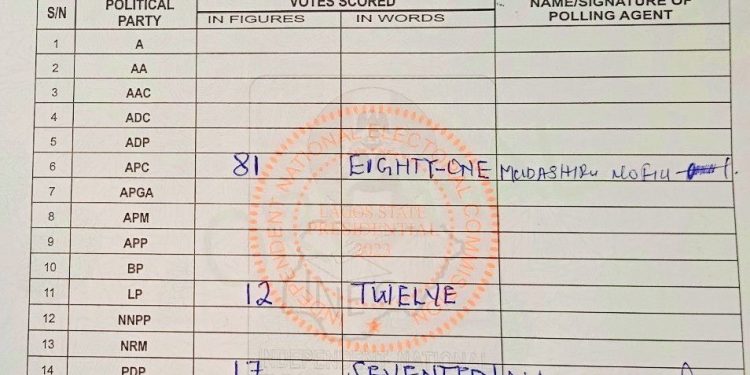 S/N POLITICAL PARTY VOTES SCORED NAME/SIGNATURE OF POLLING AGENT
IN FIGURES IN WORDS
1 A
2 AA
3 AAC
4 ADC
5 ADP
6 APC 81 EIGHTY-ONE MUDASHIRU NOFIU
7 APGA
8 APM
9 APP
10 BP
11 LP 12 TWELVE
12 NNPP
13 NRM
14 PDP 17 SEVENTEEN
INDEPENDENT NATIONAL ELECTORAL COMMISSION
LAGOS STATE
PRESIDENTIAL
2023